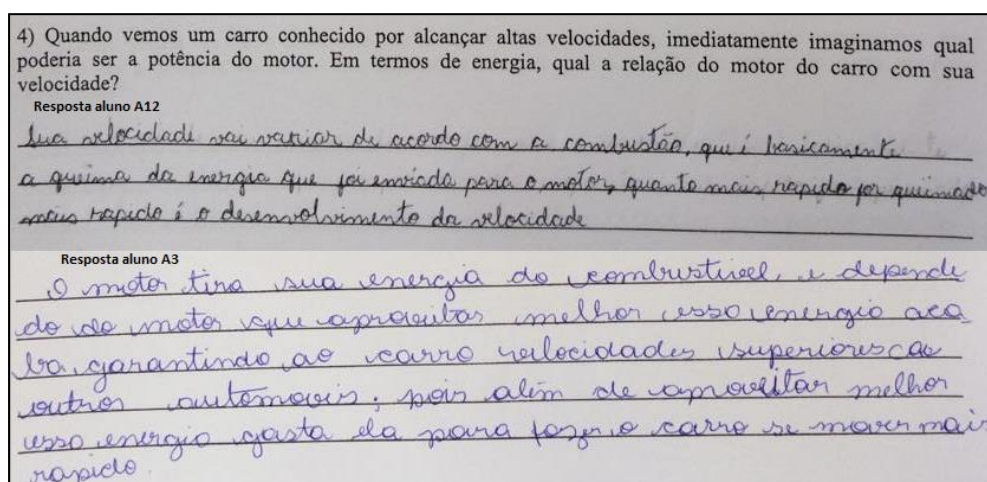 4) Quando vemos um carro conhecido por alcançar altas velocidades, imediatamente imaginamos qual
poderia ser a potência do motor. Em termos de energia, qual a relação do motor do carro com sua
velocidade?
Resposta aluno A12
Sua velocidade vai variar de acordo com a combustão, que é basicamente
a queima da energia que foi enviada para o motor, quanto mais rapido for queimado
mais rapido é o desenvolvimento da velocidade
Resposta aluno A3
O motor tira sua energia do combustivel, e depende
do do motor que aproveitar melhor esso energia aca
ba garantindo ao carro velocidades superiores ao
outros automoveis, pois além de aproveitar melhor
esso energia gasta ela para fazer o carro se mover mais
rapido.